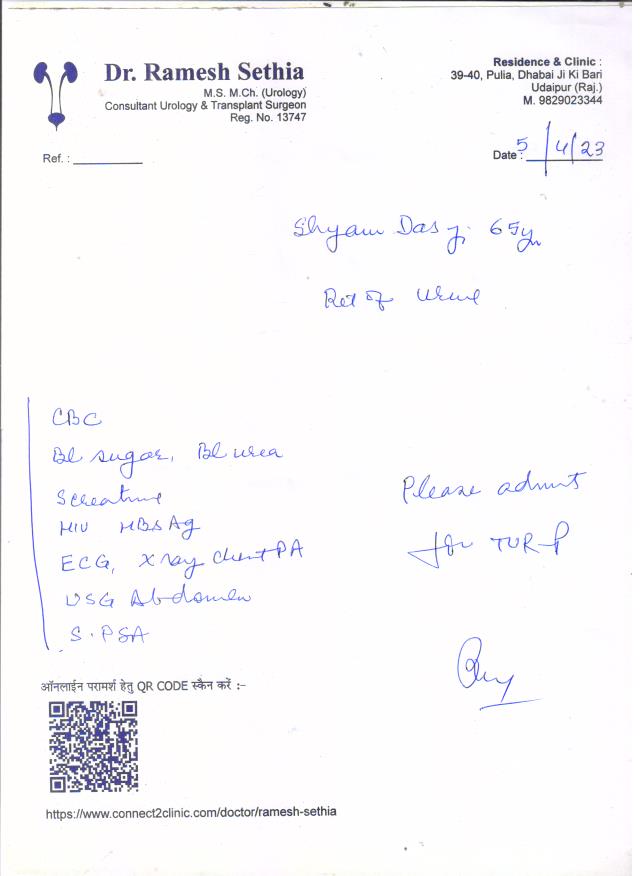 Dr. Ramesh Sethia
M.S. M.Ch. (Urology)
Consultant Urology & Transplant Surgeon
Reg. No. 13747
Residence & Clinic :
39-40, Pulia, Dhabai Ji Ki Bari
Udaipur (Raj.)
M. 9829023344
Ref. :
Date : 5/4/23
Shyam Das ji 65yr
Ret of Urine
CBC
Bl sugar, Bl urea
S creatine
HIV HBsAg
ECG, X ray Chest PA
USG Abdomen
S. PSA
Please admit
for TUR-P
ऑनलाईन परामर्श हेतु QR CODE स्कैन करें :-
https://www.connect2clinic.com/doctor/ramesh-sethia